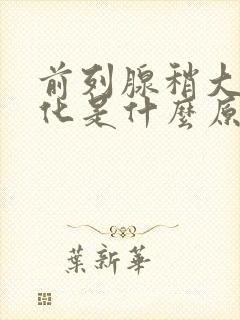 前列腺稍大
化是什麼原
葉新華